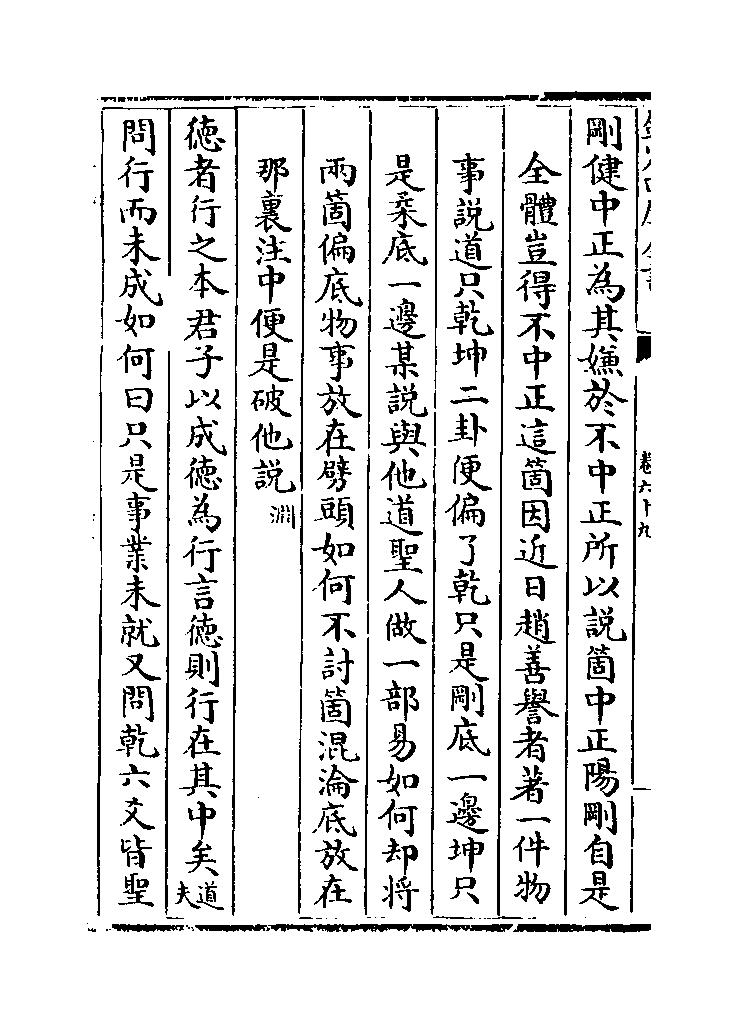 剛健中正為其嫌於不中正所以説箇中正陽剛自是
全體豈得不中正這箇因近日趙善譽者著一件物
事説道只乾坤二卦便偏了乾只是剛底一邊坤只
是柔底一邊某説與他道聖人做一部易如何却將
兩箇偏底物事放在劈頭如何不討箇混淪底放在
那裏注中便是破他説 淵
徳者行之本君子以成徳為行言徳則行在其中矣 道夫
問行而未成如何曰只是事業未就又問乾六爻皆聖
卷六十九